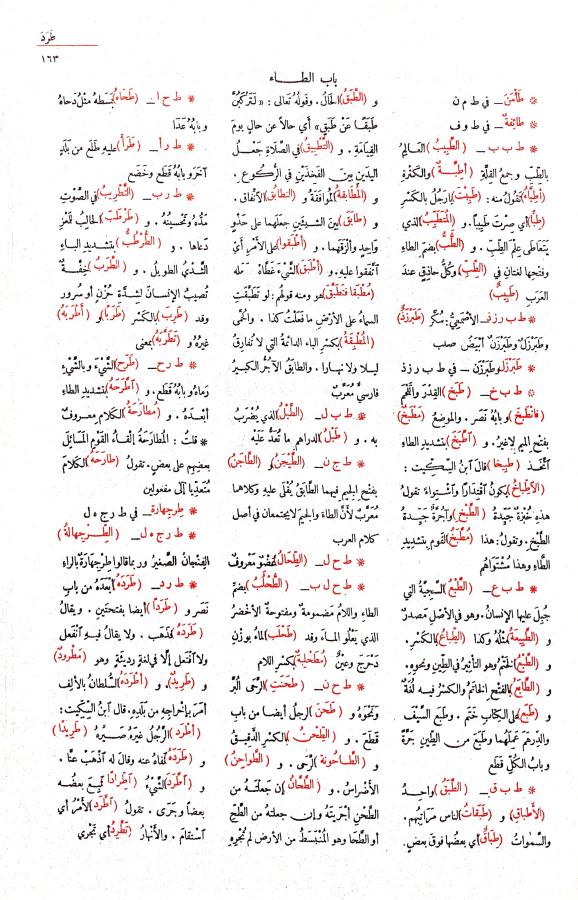 طَرَدَ
١٦٣
باب الطاء
* طَأْمَنَ ــ في ط م ن
* طائِفةٌ ــ في ط و ف
* ط ب ب ــ (الطَّبِيبُ) العَالِمُ
بالطِّبِّ وجمعُ القِلَّةِ (أَطِبَّةٌ) والكَثْرةِ
(أَطِبَّاءُ) تقولُ منه: (طَبِبْتَ) يا رَجُلُ بالكَسْرِ
(طِبًّا) أي صِرْتَ طَبِيبًا. و (المُتَطَبِّبُ) الذي
يَتَعاطَى عِلْمَ الطِّبِّ. و (الطُّبُّ) بضم الطاءِ
وفتحها لغتان في (الطِّبِّ) وكُلُّ حاذِقٍ عندَ
العَرَبِ (طَبِيبٌ)
* ط ب ر ز ذ ــ الأَصْمَعِيُّ: سُكَّر (طَبَرْزَذٌ)
وطَبَرْزَلٌ وطَبَرْزَنٌ أبْيَضُ صلب
* طَبَرْزَلٌ وطَبَرْزَنٌ ــ في ط ب ر ز ذ
* ط ب خ ــ (طَبَخَ) القِدْرَ واللَّحْمَ
(فانْطَبَخَ) وبابُهُ نَصَرَ. والموضعُ (مَطْبَخٌ)
بفتح الميم لا غيرُ. و (اطَّبَخَ) بتشديد الطاءِ
اتَّخَذَ (طَبِيخًا) قالَ ابنُ السِّكِّيت:
(الاطِّبَاخُ) يكونُ اقْتِدارًا واشْتِواءً تقولُ
هذه خُبْزَةٌ جَيِّدَةُ (الطَّبْخِ) وآجُرَّةٌ جَيِّدَةُ
الطَّبْخِ. وتقولُ: هذا (مُطَّبَخُ) القَوْمِ بتشديد
الطَّاءِ وهذا مُشْتَواهُم
* ط ب ع ــ (الطَّبْعُ) السَّجِيَّةُ التي
جُبِلَ عليها الإنسانُ. وهو في الأصْلِ مَصدرٌ
و (الطَّبِيعةُ) مثْلُهُ وكذا (الطِّبَاعُ) بالكَسْرِ.
و (الطَّبْعُ) الخَتْمُ وهو التأثيرُ في الطِّينِ ونحوِهِ.
و (الطَّابَعُ) بالفتح الخاتَمُ والكَسْرُ فيه لُغَةٌ
و (طَبَعَ) على الكِتابِ خَتَمَ. وطَبَعَ السَّيْفَ
والدِّرهَمَ عَمِلَهُما وطَبَعَ من الطِّينِ جَرَّةً
وبابُ الكُلِّ قَطَعَ
* ط ب ق ــ (الطَّبَقُ) واحِدُ
(الأَطْبَاقِ) و (طَبَقَاتُ) الناس مَرَاتِبُهم.
والسَّموَاتُ (طِبَاقٌ) أي بعضُها فوقَ بعضٍ.
و (الطَّبَقُ) الحالُ. وقولُهُ تعالى: « لَتَرْكَبُنَّ
طَبَقًا عَنْ طَبَقٍ » أي حالًا عن حالٍ يومَ
القِيَامَةِ. و (التَّطْبِيقُ) في الصَّلَاةِ جَعْلُ
اليَدَيْنِ بين الفَخِذَيْنِ في الرُّكُوعِ.
و (المُطَابَقَةُ) المُوافَقَةُ و (التطابُقُ) الاتِّفاقُ.
و (طابَقَ) بين الشَّيئينِ جعلَهما على حَذْوٍ
واحِدٍ وألْزَقَهما. و (أَطْبَقُوا) على الأمْرِ أي
اتَّفَقُوا عليه. و (أَطْبَقَ) الشَّيْءَ غَطَّاهُ
(مُطْبَقًا فتَطَبَّقَ) هو ومنه قولُهم: لو تَطَبَّقَتِ
السماءُ على الأرْضِ ما فَعَلْتُ كذا. والحُمَّى
(المُطْبِقَةُ) بكسر الباءِ الدائمةُ التي لا تُفارِقُ
ليلًا ولا نهارًا. والطابَقُ الآجُرُّ الكبيرُ
فارسيٌّ مُعَرَّبٌ
* ط ب ل ــ (الطَّبْلُ) الذي يُضْرَبُ
به. و (طَبْلُ) الدراهمِ ما تُعَدُّ عَلَيْهِ
* ط ج ن ــ (الطَّيْجَنُ) و (الطَّاجَنُ)
بفتح الجيم فيهما الطَّابَقُ يُقْلَى عليهِ وكلاهما
مُعَرَّبٌ لأنَّ الطَّاءَ والجيمَ لا يجتمعانِ في أصلِ
كلام العرب
* ط ح ل ــ (الطِّحَالُ) عُضْوٌ معروفٌ
* ط ح ل ب ــ (الطُّحْلُبُ) بضمِّ
الطاءِ واللامُ مَضمومةٌ ومفتوحةٌ الأخْضَرُ
الذي يَعْلُو الماءَ وقد (طَحْلَبَ) الماءُ بوَزْنِ
دَحْرَجَ وعَيْنٌ (مُطَحْلِبَةٌ) بكسر اللام
* ط ح ن ــ (طَحَنَتِ) الرَّحَى البُرَّ
ونَحْوَهُ و (طَحَنَ) الرجلُ أيضا من باب
قَطَعَ. و (الطِّحْنُ) بالكسرِ الدَّقِيقُ
و (الطَّاحُونةُ) الرَّحى. و (الطَّوَاحِنُ)
الأَضْراسُ. و (الطَّحَّانُ) إن جعلتَهُ من
الطَّحْنِ أجْرَيْتَهُ وإن جعلتَه من الطَّحِّ
أو الطَّحَا وهو المُنْبَسَطُ من الأرض لم تُجْرِهِ
* ط ح ا ــ (طَحَاهُ) بَسَطهُ مثلُ دَحَاهُ
وبابُهُ عَدَا
* ط ر أ ــ (طَرَأَ) عليهِ طَلَع من بَلَدٍ
آخَرَ وبابُهُ قَطَعَ وخَضَع
* ط ر ب ــ (التَّطْرِيبُ) في الصَّوْتِ
مَدُّهُ وتَحْسِينُهُ. و (طَرْطَبَ) الحالِبُ للمَعْزِ
دَعاها. و (الطُّرْطُبُّ) بتشديد الباءِ
الثَّدْيُ الطويلُ. و (الطَّرَبُ) خِفَّةٌ
تُصيبُ الإنسانَ لشِدَّةِ حُزْنٍ أو سُرورٍ
وقد (طَرِبَ) بالكَسْرِ (طَرَبًا) و (أَطْرَبَهُ)
غيرُهُ و (تَطَرَّبَهُ) بمعنى
* ط ر ح ــ (طَرَحَ) الشَّيْءَ وبالشَّيْءِ
رَمَاهُ وبابُهُ قَطَع. و (اطَّرَحَهُ) بتشديد الطاءِ
أبْعَدَهُ. و (مُطارَحَةُ) الكَلامِ معروفٌ
* قلتُ: المُطَارَحَةُ إلقاءُ القَوْمِ المَسائِلَ
بعضِهِم على بعضٍ. تقولُ (طارَحَهُ) الكَلَامَ
مُتَعَدِّيًا إلى مفعولين
* طِرجهارة ــ في ط ر ج ه ل
* ط ر ج ه ل ــ (الطِّرْجِهَالَةُ)
الفِنْجَانُ الصَّغيرُ وربما قالوا طِرْجِهَارَةٌ بالراءِ
* ط ر د ــ (طَرَدَهُ) أبْعَدَهُ من بابِ
نَصَرَ و (طَرَدًا) أيضا بفتحتين. ويقالُ
(طَرَدَهُ) فذَهَب. ولا يقالُ فيه انْفَعَل
ولا افْتَعَلَ إلَّا في لغةٍ رديئةٍ وهو (مَطْرودٌ)
و (طَرِيدٌ). و (أَطْرَدَهُ) السُّلطانُ بالألِفِ
أمَرَ بإخْراجِهِ من بَلَدِهِ. قال ابنُ السِّكِّيت:
(أَطْرَدَ) الرَّجُلُ غيرَهُ صَيَّرَهُ (طَرِيدًا)
و (طَرَدَهُ) نَفَاهُ عنه وقالَ له اذْهَبْ عنَّا.
و (اطَّرَدَ) الشَّيْءُ (اطِّرَادًا) تَبِعَ بعضُه
بعضًا وجَرَى. تقولُ (اطَّرَدَ) الأمْرُ أي
استقامَ. والأنهارُ (تَطَّرِدُ) أي تَجْرِي